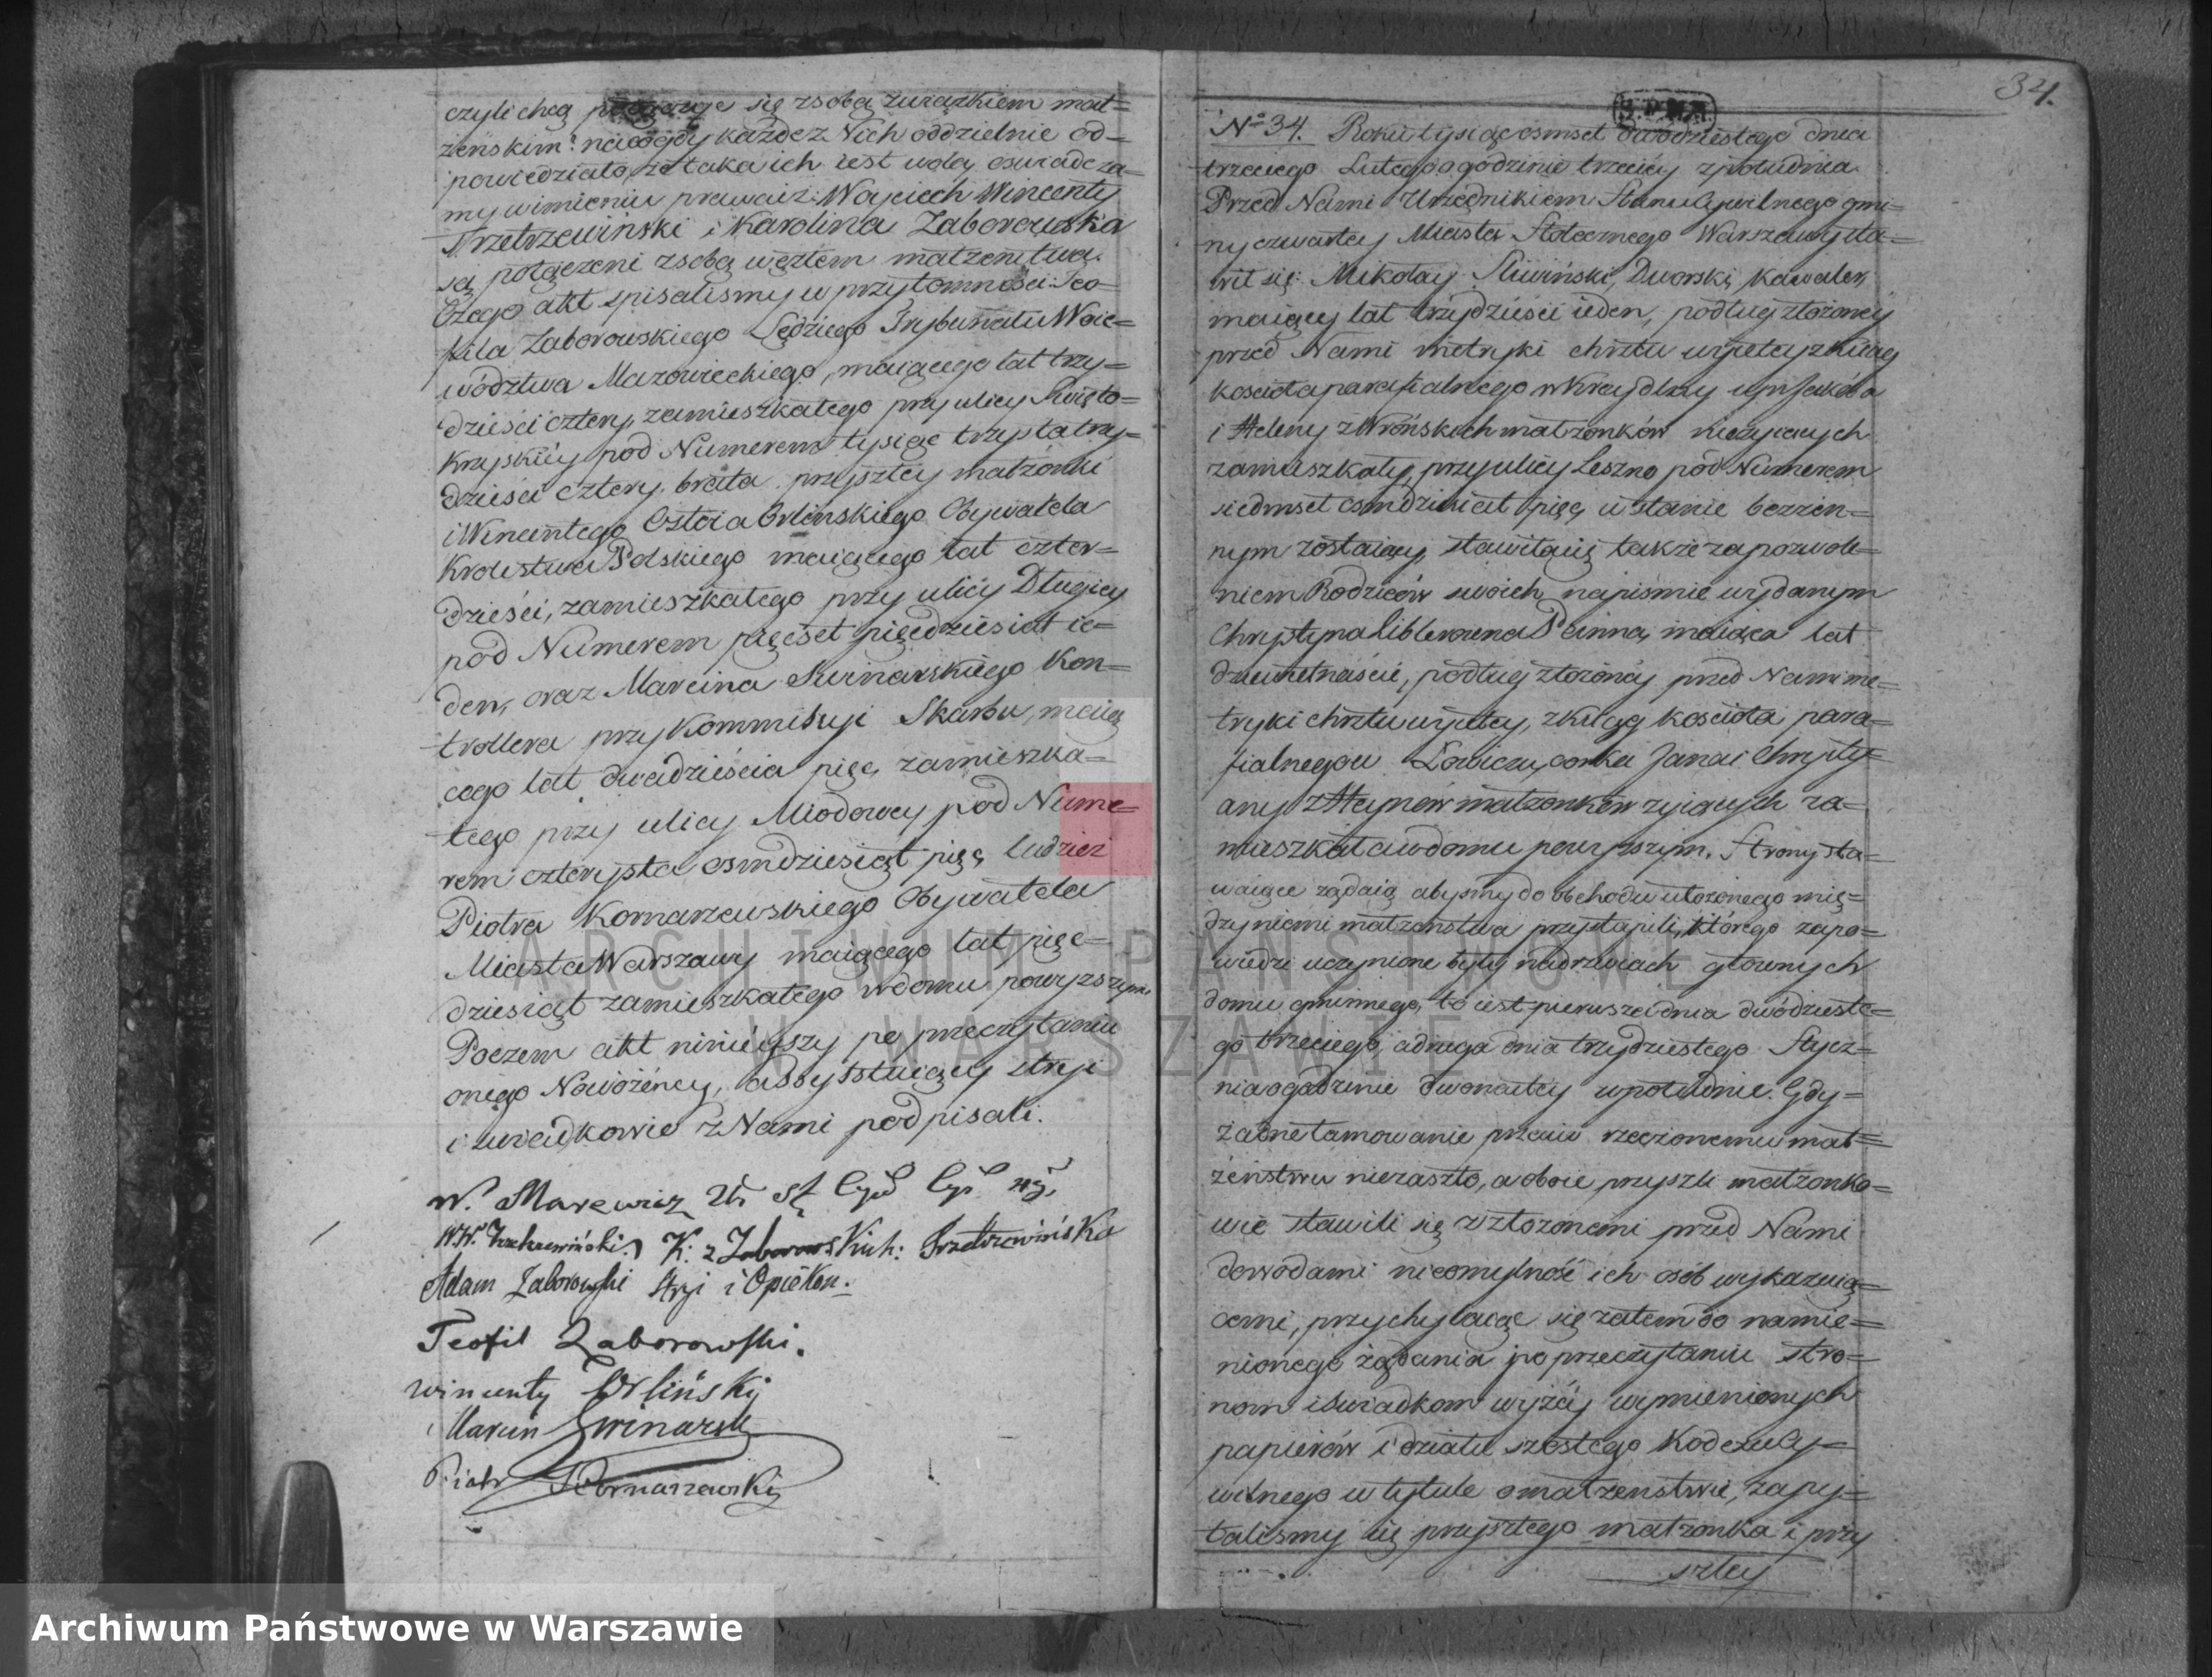 czyli chcą się zsobą związkiem mał=
żeńskim? na co gdy każde z Nich oddzielnie od=
powiedziało, że taka ich iest wola, oswiadcza=
my wimieniu prawa iż: Wojciech Wincenty
Trzetrzewiński i Karolina Zaborowska
są połączeni zsobą węzłem małżeństwa.
Czego akt spisalismy w przytomności: Teo=
fila Zaborowskiego Sędziego Trybunału Woie=
wództwa Mazowieckiego, maiącego lat trzy=
dzieści cztery, zamieszkałego przy ulicy Swięto=
krzyskiéy pod Numerem tysiąc trzysta trzy=
dzieści cztery, brata przyszłey małżonki
i Wincentego Ostoia Orlińskiego Obywatela
Krolestwa Polskiego maiącego lat czter=
dzieści, zamieszkałego przy ulicy Długiey
pod Numerem pięcset pięcdziesiąt ie=
den, oraz Marcina Swinarskiego Kon=
trollera przy Kommissyi Skarbu, maią
cego lat dwadzieścia pięc, zamieszka=
łego przy ulicy Miodowey pod Nume=
rem czterysta osmdziesiąt pięc, tudzież
Piotra Komarzewskiego Obywatela
Miasta Warszawy maiącego lat pięc=
dziesiąt zamieszkałego w domu powyzszym
Poczem akt ninieyszy po przeczytaniu
onego Nowożeńcy, assystuiący stryi
i swiadkowie z Nami podpisali.
W. Marewicz
W. W. Trzetrzewiński. K: z Zaborowskich: Trzetrzewińska
Adam Zaborowski Stryi i Opiekun.
Teofil Zaborowski.
Wincenty Orliński
Marcin Swinarski
Piotr Komarzewski
34.
No 34. Roku tysiąc osmset dwudziestego dnia
trzeciego Lutego o godzinie trzeciéy zpołudnia.
Przed Nami Urzędnikiem Stanu Cywilnego gmi=
ny czwartey Miasta Stołecznego Warszawy sta=
wił się: Mikołay Sliwiński, Dworski, Kawaler,
maiący lat trzydzieści ieden, podług złożoney
przed Nami metryki chrztu wyiętey z ksiąg
kościoła parafialnego w syn Jakóba
i Heleny z Wrońskich małżonków nieżyiących
zamieszkały, przy ulicy Leszno pod Numerem
siedmset osmdziesiąt pięc, w stanie bezżen=
nym zostaiący, stawiła się także za pozwole=
niem Rodziców swoich na pismie wydanym
Chrystyna Liblerowna Panna, maiąca lat
dziewietnaście, podług złożonéy przed Nami me=
tryki chrztu wyiętey, z ksiąg kościoła para=
fialnego w Łowiczu, corka Jana i Chrysty=
any z Heynów małżonków żyiących za=
mieszkała w domu powyzszym. Strony sta=
waiące żądaią abysmy do obchodu ułożonego mię=
dzy niemi małżenstwa przystąpili, którego zapo=
wiedzi uczynione były na drzwiach głownych
domu gminnego, to iest pierwsza dnia dwódzieste=
go trzeciego, a druga dnia trzydziestego Stycz=
nia o godzinie dwonastey w południe. Gdy=
żadne tamowanie przeciw rzeczonemu mał=
żeństwu niezaszło, a oboie przyszli małżonko=
wie stawili się z złożonemi przed Nami
dowodami nieomylność ich osób wykazuią=
cemi, przychylaiąc się zatem do namie=
nionego żądania po przeczytaniu stro=
nom i swiadkom wyżéy wymienionych
papierów i działu szóstego Kodexu Cy=
wilnego w tytule o małżenstwie, zapy=
talismy się przyszłego małżonka i przy
szłey
ARCHIWUM PAŃSTWOWE
W WARSZAWIE
Archiwum Państwowe w Warszawie